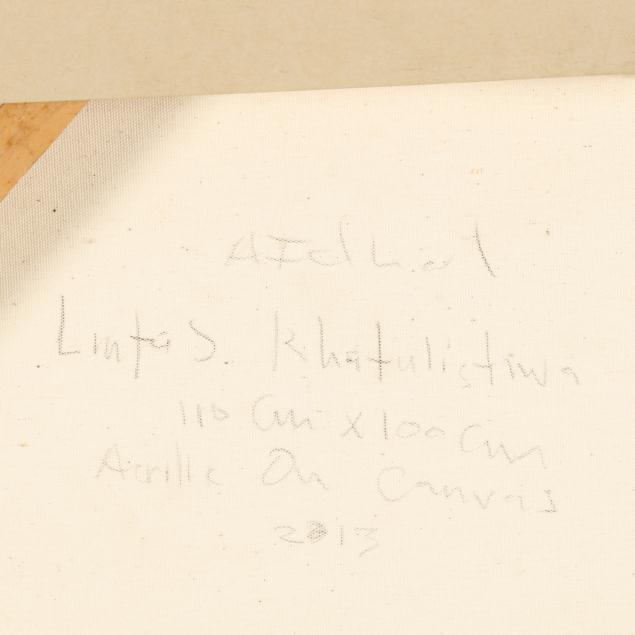 Aidhal
Lintas Khatulistiwa
110 Cm X 100 Cm
Acrilic On Canvas
2013